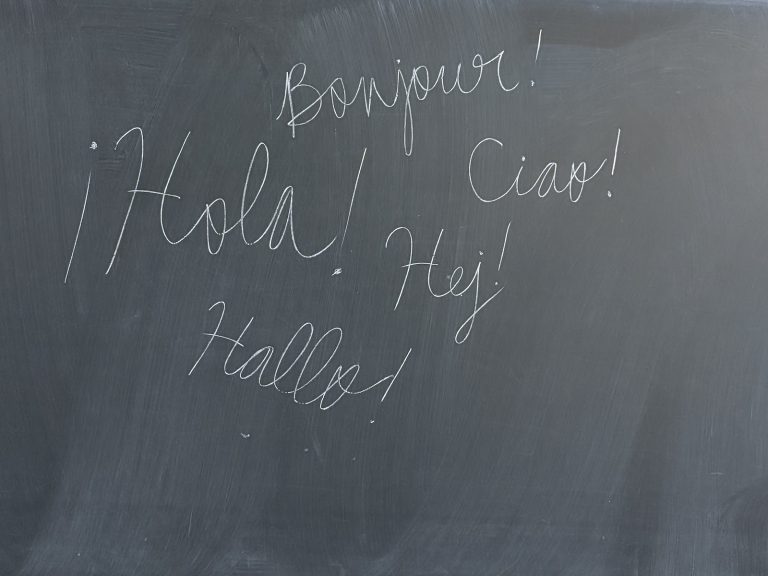 Bonjour!
¡Hola!
Ciao!
Hej!
Hallo!